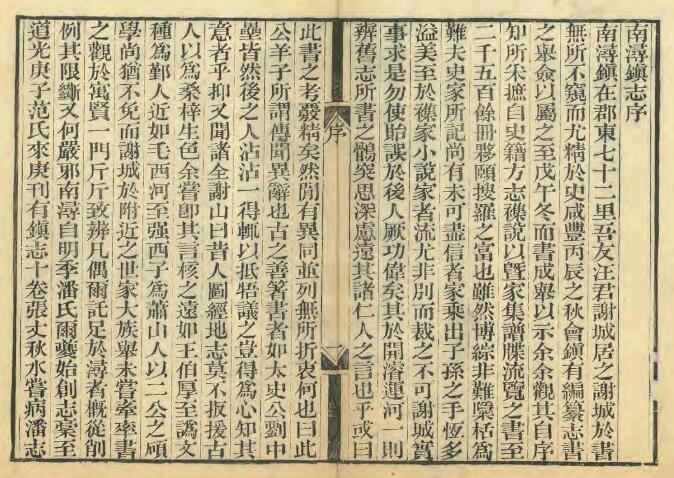 南潯鎮志序
南潯鎮在郡東七十二里吾友汪君謝城居之謝城於書
無所不窺而尤精於史咸豐丙辰之秋會鎮有編纂志書
之舉僉以屬之至戊午冬而書成舉以示余余觀其自序
知所朱摭自史籍方志襍說以曁家集譜牒流覽之書至
二千五百餘冊夥頤搜羅之富也雖然博綜非難檃栝爲
難夫史家所記尚有未可盡信者家乘出子孫之手恆多
溢美至於襍家小說家者流尤非別而裁之不可謝城實
事求是勿使貽誤於後人厥功偉矣其於開濬運河一則
辨舊志所書之鶻突思深慮遠其諸仁人之言也乎或曰
序
一
此書之考覈精矣然閒有異同並列無所折衷何也曰此
公羊子所謂傳聞異辭也古之善箸書者如太史公劉中
壘皆然後之人沾沾一得輒以抵牾議之豈得爲心知其
意者乎抑又聞諸全謝山曰昔人圖經地志莫不扳援古
人以爲桑梓生色余嘗卽其言核之遠如王伯厚至譌文
種爲鄞人近如毛西河至强西子爲蕭山人以二公之碩
學尚猶不免而謝城於附近之世家大族舉未嘗牽率書
之觀於寓賢一門斤斤致辨凡偶爾託足於潯者槪從削
例其限斷又何嚴邪南潯自明季潘氏爾夔始創志稾至
道光庚子范氏來庚刊有鎮志十卷張丈秋水嘗病潘志